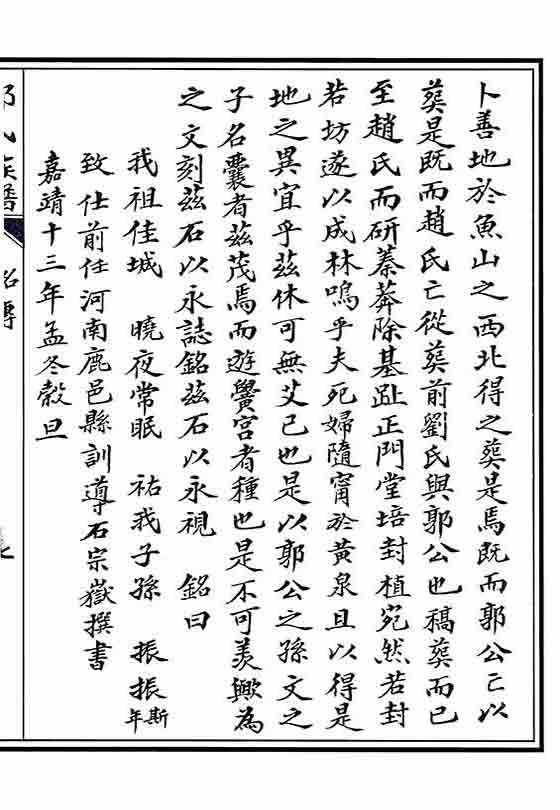 卜善地於魚山之西北得之葬是焉既而郭公亡以
葬是既而趙氏亡從葬前劉氏與郭公也稿葬而已
至趙氏而研蓁莽除基趾正門堂培封植宛然若封
若坊遂以成林嗚乎夫死婦隨甯於黃泉且以得是
地之異宜乎茲休可無艾已也是以郭公之孫文之
子名囊者茲茂焉而遊黌宮者種也是不可羨歟為
之文刻茲石以永誌銘茲石以永視 銘曰
我祖佳城 曉夜常眠 祐我子孫 振振斯年
致仕前任河南鹿邑縣訓導石宗嶽撰書
嘉靖十三年孟冬穀旦